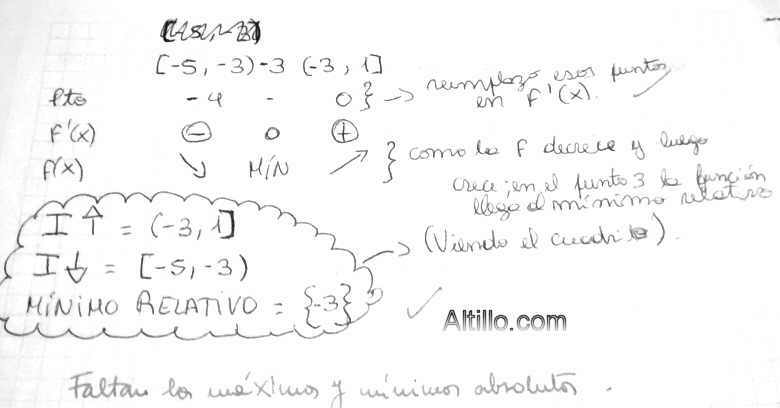 [-5, -3) -3 (-3, 1]
Pto -4 - 0 } → reemplazo esos puntos
en F'(x).
F'(x) ⊖ 0 ⊕
f(x) ↘ MÍN ↗ } como la F decrece y luego
crece, en el punto 3 la función
llega al mínimo relativo
(Viendo el cuadrito).
I↑ = (-3, 1]
I↓ = [-5, -3)
MÍNIMO RELATIVO = {-3}
Altillo.com
Faltan los máximos y mínimos absolutos.